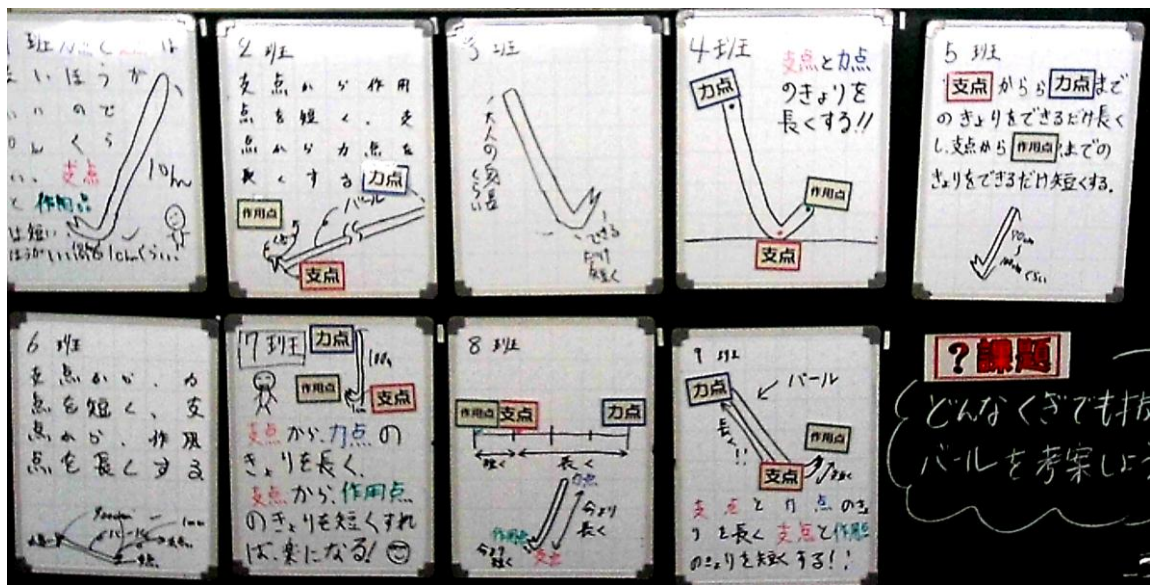 班
いほうが
いので
くら
い、支点
と作用点
は短い
ほうがいい
1cmくらい.
10m
2 班
支点から作用
点を短く、支
点から力点を
長くする
力点
バール
作用点
支点
3 班
大人の身長くらい
できる
だけ
短く
4 班
支点と力点
のきょりを
長くする!!
力点
作用点
支点
5 班
支点からら力点まで
のきょりをできるだけ長く
し、支点から作用点までの
きょりをできるだけ短くする.
6 班
支点から、力
点を短く、支
点から、作用
点を長くする
支点
7 班
力点
作用点
支点
支点から、力点の
きょりを長く、
支点から、作用点
のきょりを短くすれ
ば、楽になる!
8 班
作用点 支点 力点
短く 長く
力点
今より
長く
作用点
支点
今より
短く
9 班
力点
バール
長く!!
作用点
支点
短く
支点と力点のき
ょりを長く支点と作用点
のきょりを短くする!!
?課題
どんなくぎでも抜
バールを考案しよう